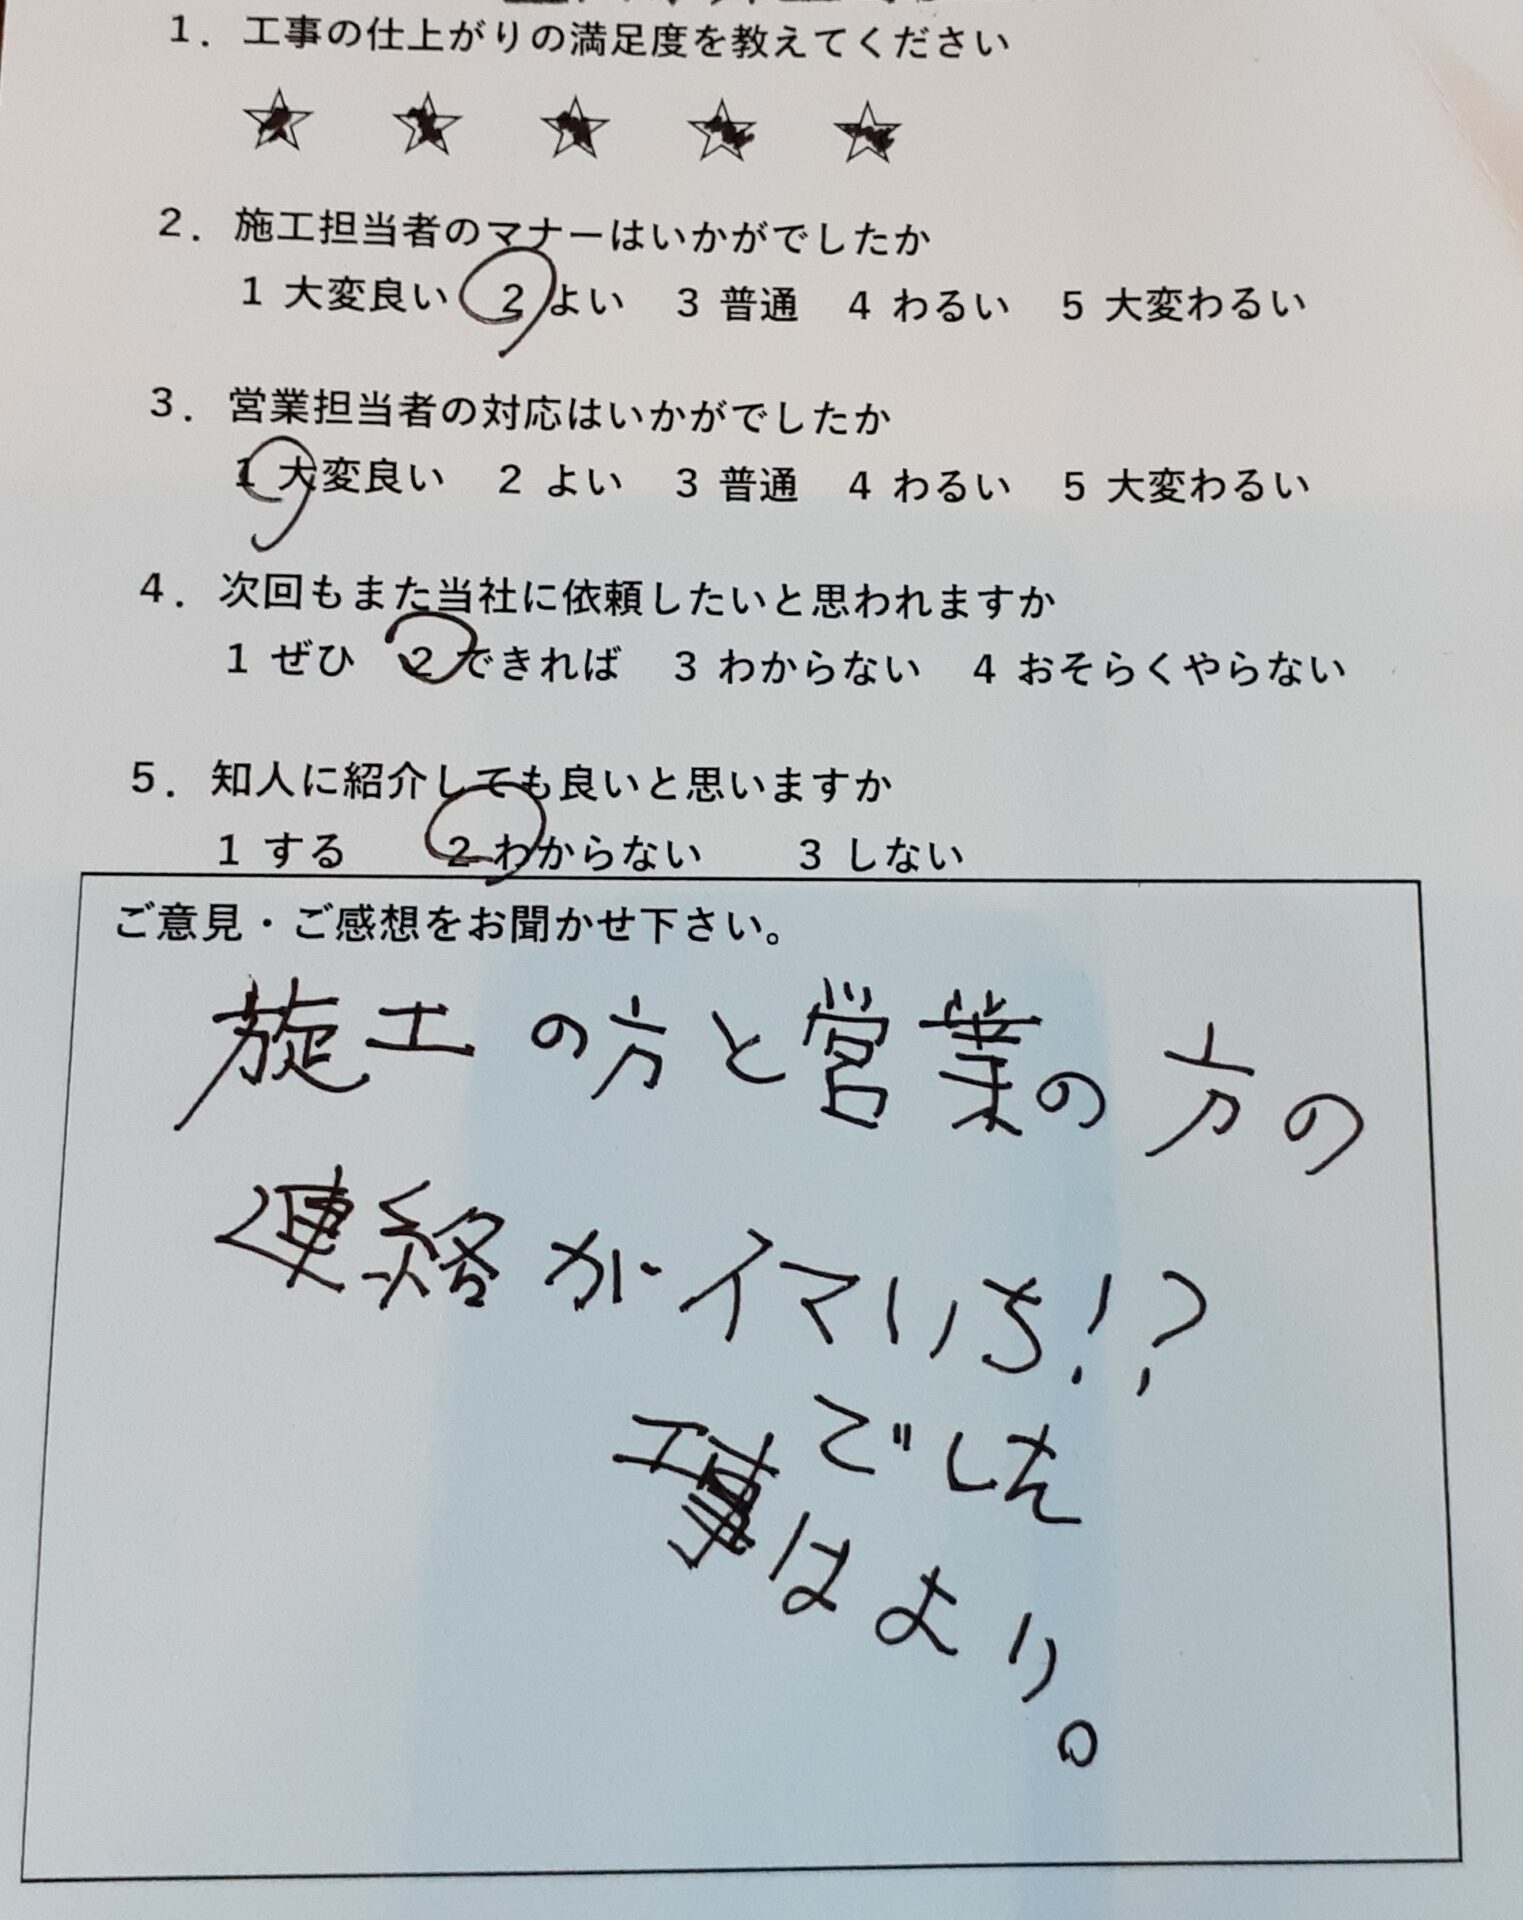 1．工事の仕上がりの満足度を教えてください
☆ ☆ ☆ ☆ ☆
2．施工担当者のマナーはいかがでしたか
1 大変良い 2 よい 3 普通 4 わるい 5 大変わるい
3．営業担当者の対応はいかがでしたか
1 大変良い 2 よい 3 普通 4 わるい 5 大変わるい
4．次回もまた当社に依頼したいと思われますか
1 ぜひ 2 できれば 3 わからない 4 おそらくやらない
5．知人に紹介しても良いと思いますか
1 する 2 わからない 3 しない
ご意見・ご感想をお聞かせ下さい。
施工の方と営業の方の
連絡がイマいち!?
でした
工事はより。